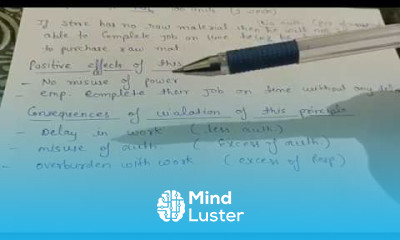 If store has no raw material then he will not
able to complete job on time being he
to purchase raw mat
Positive effect of this
- No misuse of power
- emp. complete their job on time without any
Consequences of violation of this principle
- Delay in work (less auth)
- misuse of auth (Excess of auth)
- overburden with work (excess of resp)
Mind
Luster